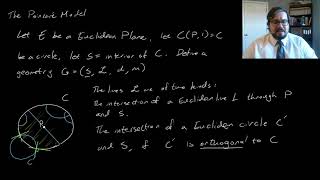 The Poincaré Model
Let E be a Euclidean Plane, let C(P,1)=C
be a circle, let S = interior of C. Define a
geometry G = (S, L, d, m)
The lines L are of two kinds:
the intersection of a Euclidean line L through P
and S.
The intersection of a Euclidean circle C'
and S, if C' is orthogonal to C
C
P